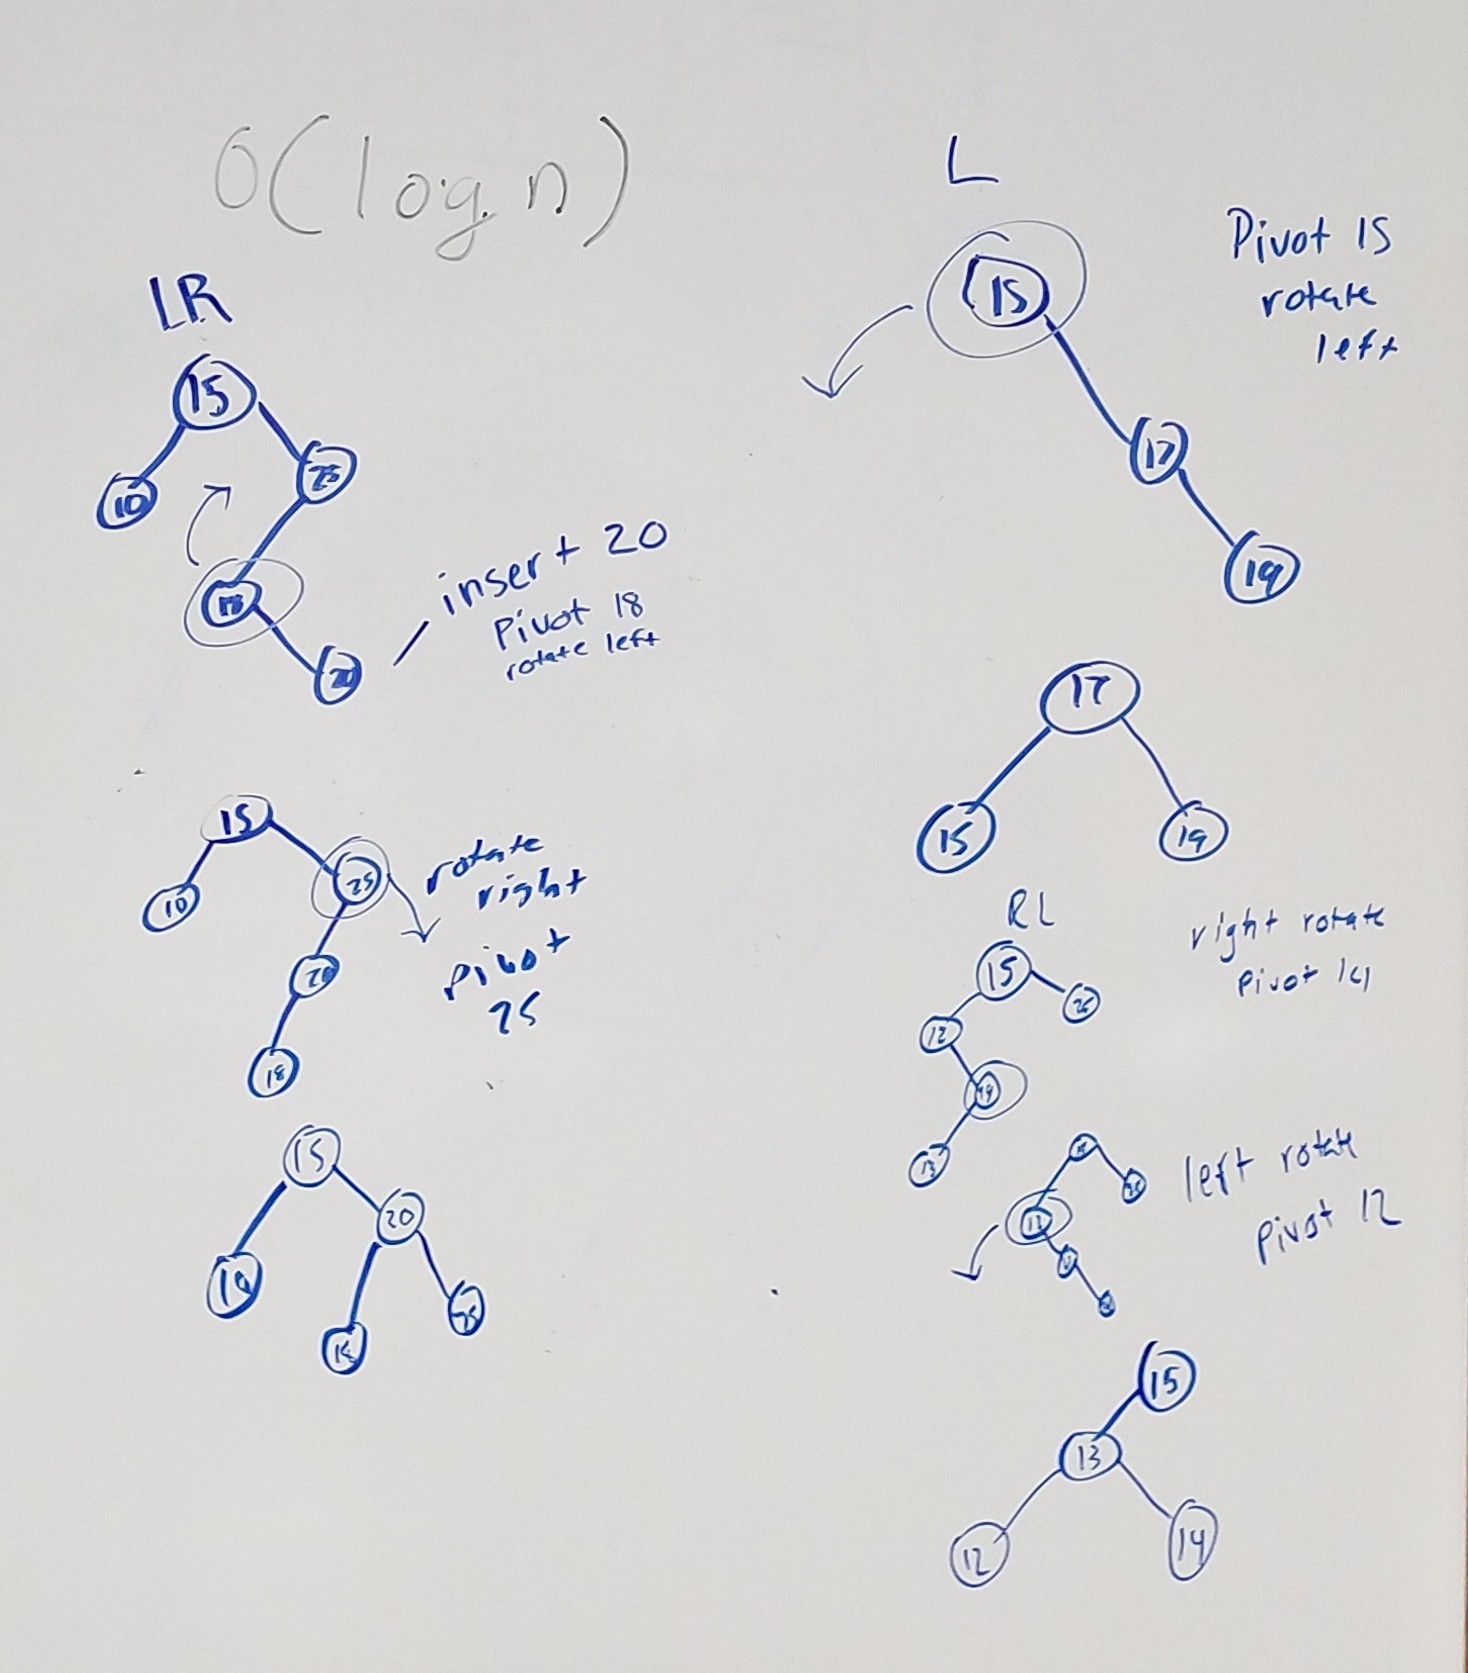 O(log n)
LR
15
10
25
18
20
insert 20
Pivot 18
rotate left
15
10
25
20
18
rotate
right
pivot
25
15
10
20
18
25
L
15
Pivot 15
rotate
left
17
19
17
15
19
RL
right rotate
Pivot 14
15
12
14
13
left rotate
pivot 12
12
15
13
12
14